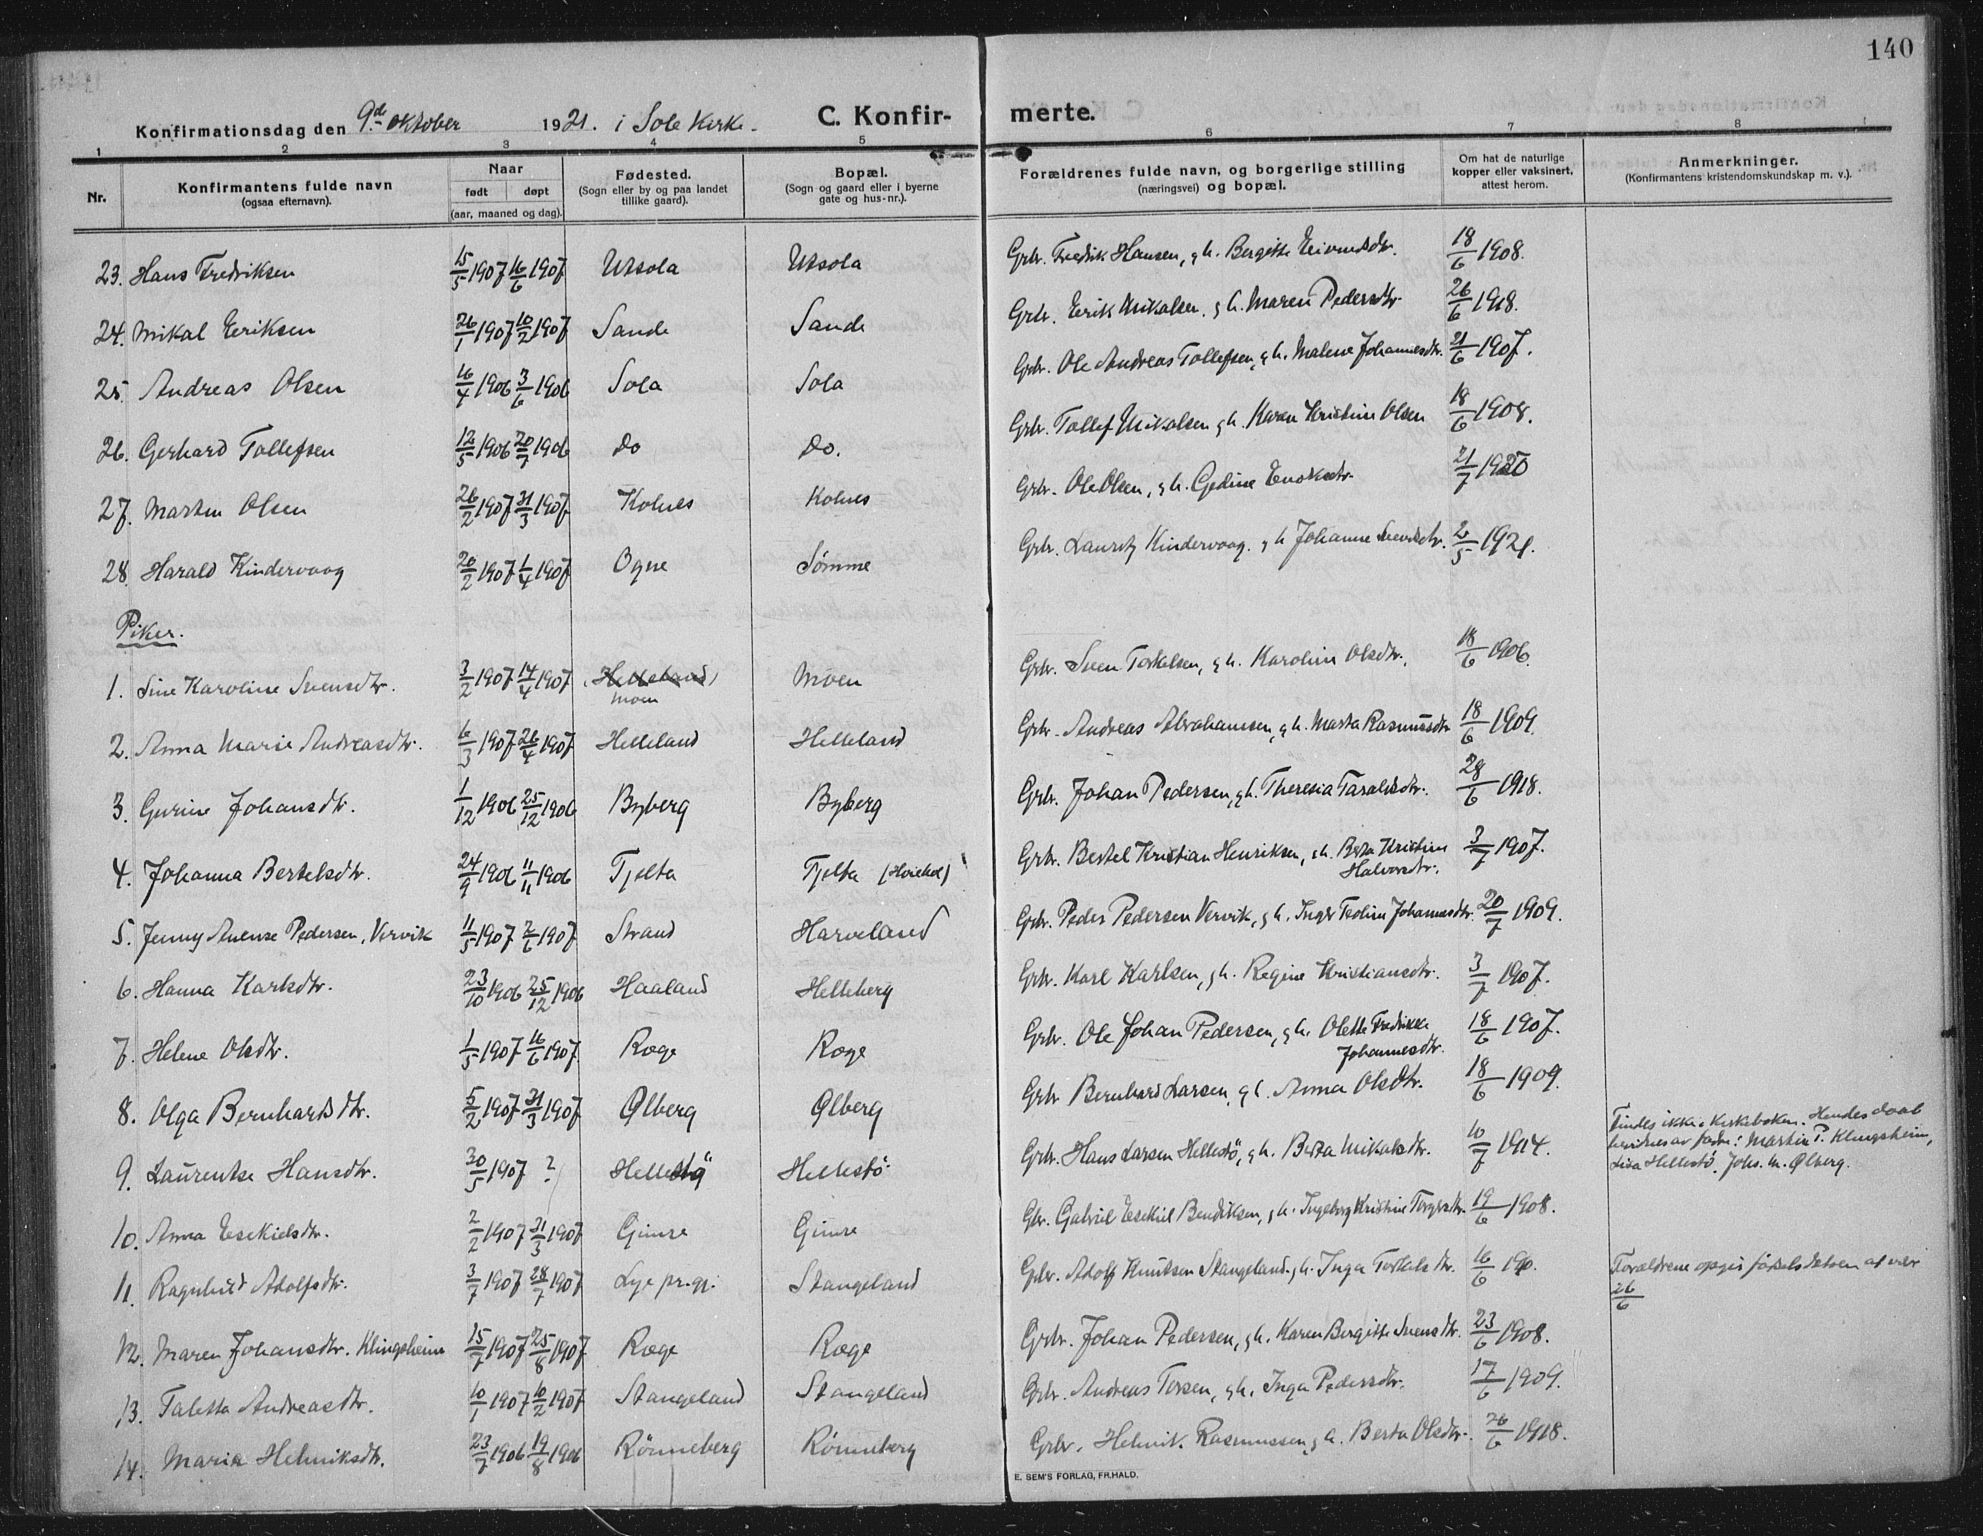 140
Konfirmationsdag den 9de oktober 1921. i Sole Kirke. C. Konfir- merte.
1 2 3 4 5 6 7 8
Nr. Konfirmantens fulde navn (ogsaa efternavn). Naar født døpt (aar, maaned og dag). Fødested. (Sogn eller by og paa landet tillike gaard). Bopæl. (Sogn og gaard eller i byerne gate og hus-nr.). Forældrenes fulde navn, og borgerlige stilling (næringsvei) og bopæl. Om hat de naturlige kopper eller vaksinert, attest herom. Anmerkninger. (Konfirmantens kristendomskundskap m. v.).
23. Hans Fredriksen 15/5 1907 16/6 1907 Utsola Utsola Grbr. Fredrik Hansen, gh. Bergitte Eivindsdtr. 18/6 1908.
24. Mikal Eriksen 26/1 1907 10/2 1907 Sande Sande Grbr. Erik Mikalsen, gh. Maren Pedersdtr. 26/6 1918.
25. Andreas Olsen 16/4 1906 3/6 1906 Sola Sola Grbr. Ole Andreas Tollefsen, gh. Malene Johannesdtr. 21/6 1907.
26. Gerhard Tollefsen 12/5 1906 20/7 1906 Do Do. Grbr. Tollef Mikalsen gh. Karen Kristine Olsen 18/6 1908.
27. Martin Olsen 26/2 1907 31/3 1907 Kolnes Kolnes Grbr. Ole Olsen, gh. Gedine Enoksdtr. 21/7 1920
28 Harald Kindervaag 20/2 1907 1/4 1907 Ogne Sømme Grbr. Lauritz Kindervaag. gh Johanne Svendsdtr. 2/5 1921.
Piker.
1. Sine Karoline Svensdtr. 3/2 1907 14/4 1907 Helleland Moen Moen Grbr. Sven Torkelsen, gh. Karoline Olsdtr. 18/6 1906.
2. Anna Marie Andreasdtr. 6/3 1907 26/4 1907 Helleland Helleland Grbr. Andreas Abrahamsen, gh. Marta Rasmusdtr 18/6 1909.
3. Gurine Johansdtr. 1/12 1906 25/12 1906 Byberg Byberg Grbr. Johan Pedersen, gh. Theresia Taraldsdtr. 28/6 1918.
4. Johanna Bertelsdtr. 24/9 1906 11/11 1906 Tjelta Tjelta Grbr. Bertel Kristian Henriksen, gh. Berta Kristine Halvorsdtr. 3/7 1907.
5. Jenny Anense Pedersen, Vervik 11/5 1907 2/6 1907 Strand Harveland Grbr. Peder Pedersen Vervik, gh. Inger Teoline Johannesdtr. 20/7 1909.
6. Hanna Karlsdtr. 23/10 1906 25/12 1906 Haaland Helleberg Grbr. Karl Karlsen, gh. Regine Kristiansdtr. 3/7 1907.
7. Helene Olsdtr. 1/5 1907 16/6 1907 Røge Røge Grbr. Ole Johan Pedersen, gh. Olette Fredrikke Johannesdtr. 18/6 1907.
8. Olga Bernhartsdtr. 5/2 1907 31/3 1907 Ølberg Ølberg Grbr Bernhard Larsen, gh. Anna Olsdtr. 18/6 1909.
9. Laurentse Hansdtr. 30/5 1907 ? Hellestö Hellestö Grbr. Hans Larsen Hellestö, gh. Berta Mikalsdtr. 10/7 1914. Findes ikke i kirkeboken. Hendes daab bevidnes av fadre: Martin P. Klingsheim, Lisa Hellestö. Johs. M. Ølberg.
10. Anna Esekielsdtr. 2/2 1907 31/3 1907 Gimre Gimre Gbr. Gabriel Esekiel Bendiksen, gh. Ingeborg Kristine Torgersdtr. 19/6 1908.
11. Ragnhild Adolfsdtr. 3/7 1907 28/7 1907 Lye pr.gj. Stangeland Gbr. Adolf Knutsen Stangeland gh. Inga Torkelsdtr. 16/6 Forældrene opgir fødselsdatoen at være 26/6
12. Maren Johansdtr. Klingsheim 15/7 1907 25/8 1907 Røge Røge Grbr. Johan Pedersen, gh. Karen Bergitte Svensdtr. 23/6 1908.
13. Taletta Andreasdtr. 10/1 1907 10/2 1907 Stangeland Stangeland Grbr. Andreas Torsen, gh. Inga Pedersdtr. 17/6 1909.
14. Maria Helmiksdtr. 23/7 1906 19/8 1906 Rönneberg Rönneberg Grbr. Helmik Rasmussen, gh. Berta Olsdtr. 26/6 1918.
E. SEM'S FORLAG, FR.HALD.